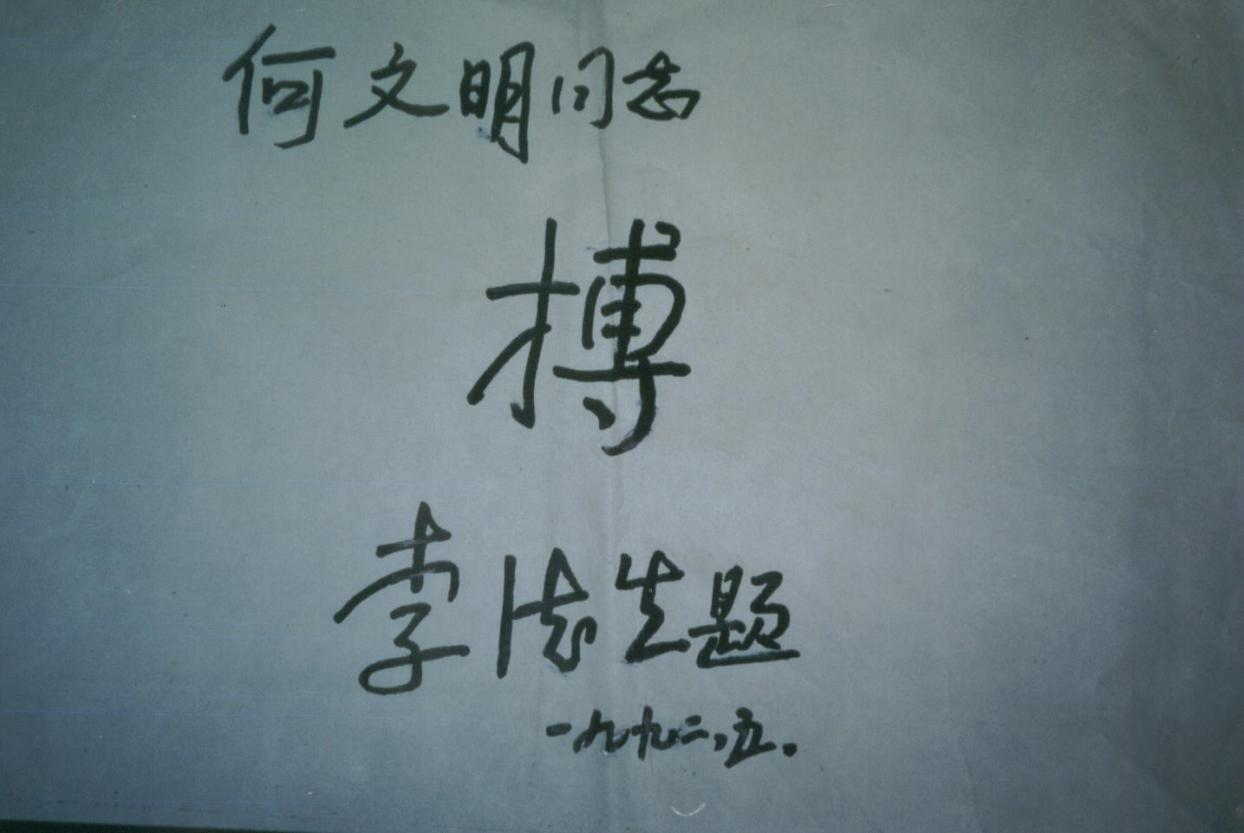 何文明同志
搏
李法生题
一九九二，五．